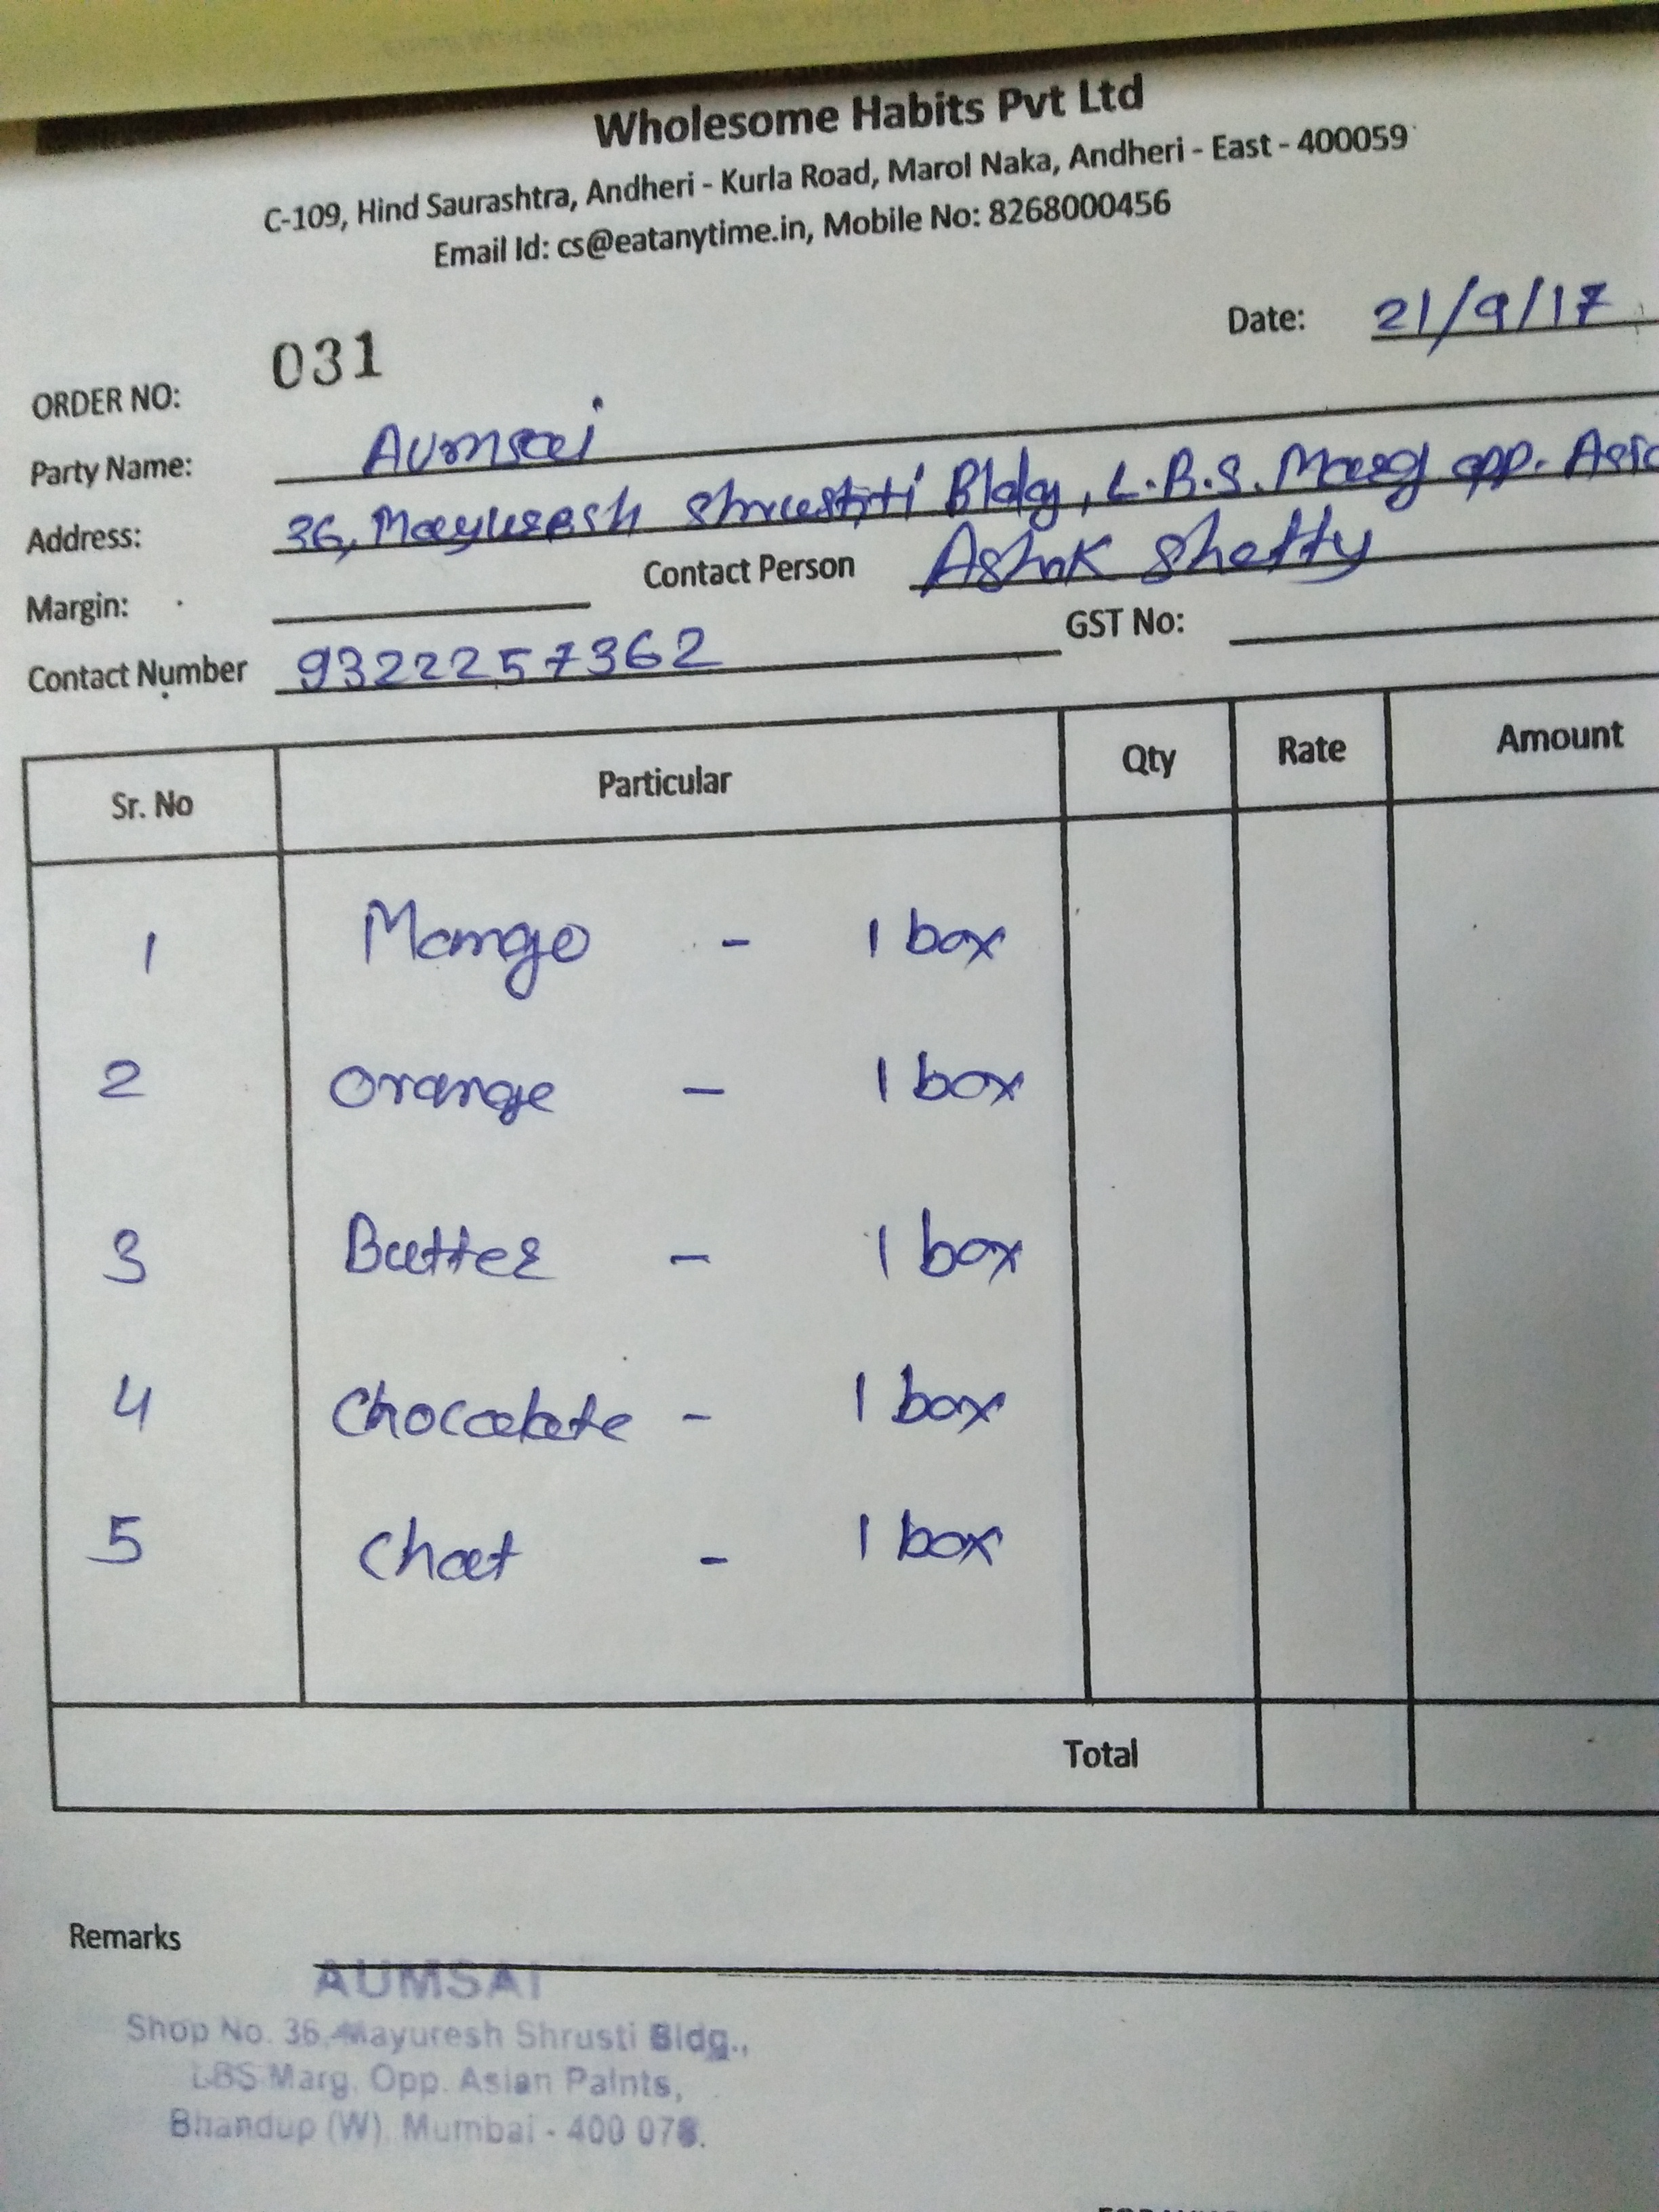 Wholesome Habits Pvt Ltd
C-109, Hind Saurashtra, Andheri - Kurla Road, Marol Naka, Andheri - East - 400059
Email Id: cs@eatanytime.in, Mobile No: 8268000456
Date: 21/9/17
ORDER NO: 031
Party Name: Aumsai
Address: 36, Mayuresh Shrustiti Bldg, L.B.S. Marg opp. Asia
Margin: Contact Person Ashok Shetty
Contact Number 9322257362 GST No:
Sr. No Particular Qty Rate Amount
1 Mango - 1 box
2 Orange - 1 box
3 Butter - 1 box
4 Chocolate - 1 box
5 Chat - 1 box
Total
Remarks
AUMSAI
Shop No. 36, Mayuresh Shrusti Bldg.,
LBS Marg, Opp. Asian Paints,
Bhandup (W), Mumbai - 400 078.